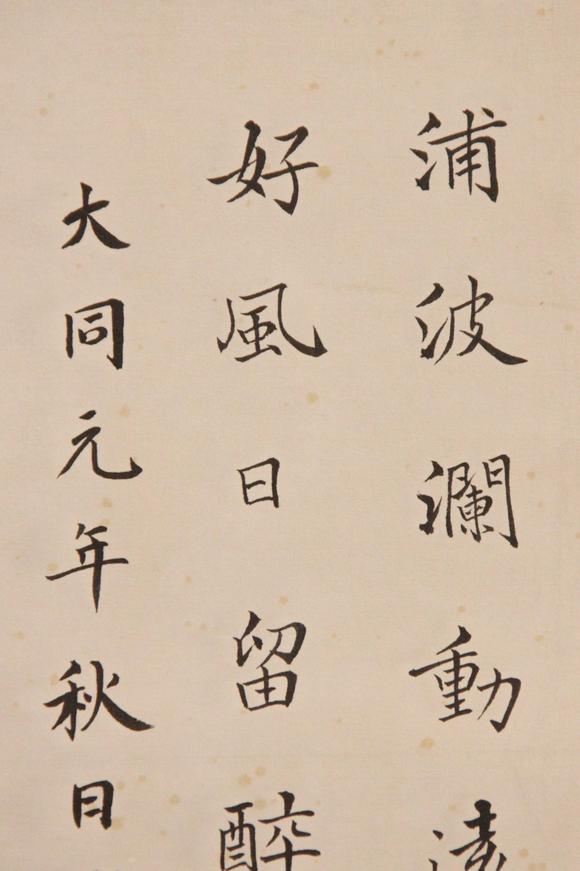 浦波瀾動
好風日留醉
大同元年秋日